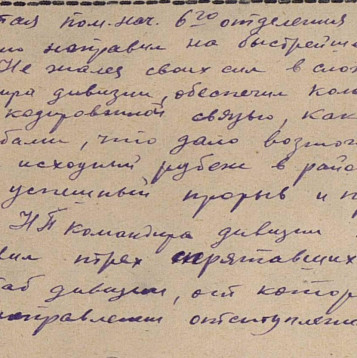 тая пом. нач. 6го отделения
но направил на быстрейш
Не жалея своих сил в слож
ира дивизии, обеспечил ком
кодированной связью, как
бами, что дало возмож
исходный рубеж в рай
успешный прорыв и п
НП командира дивизии
вил трех спрятавших
таб дивизии, от котор
направлении отступлени